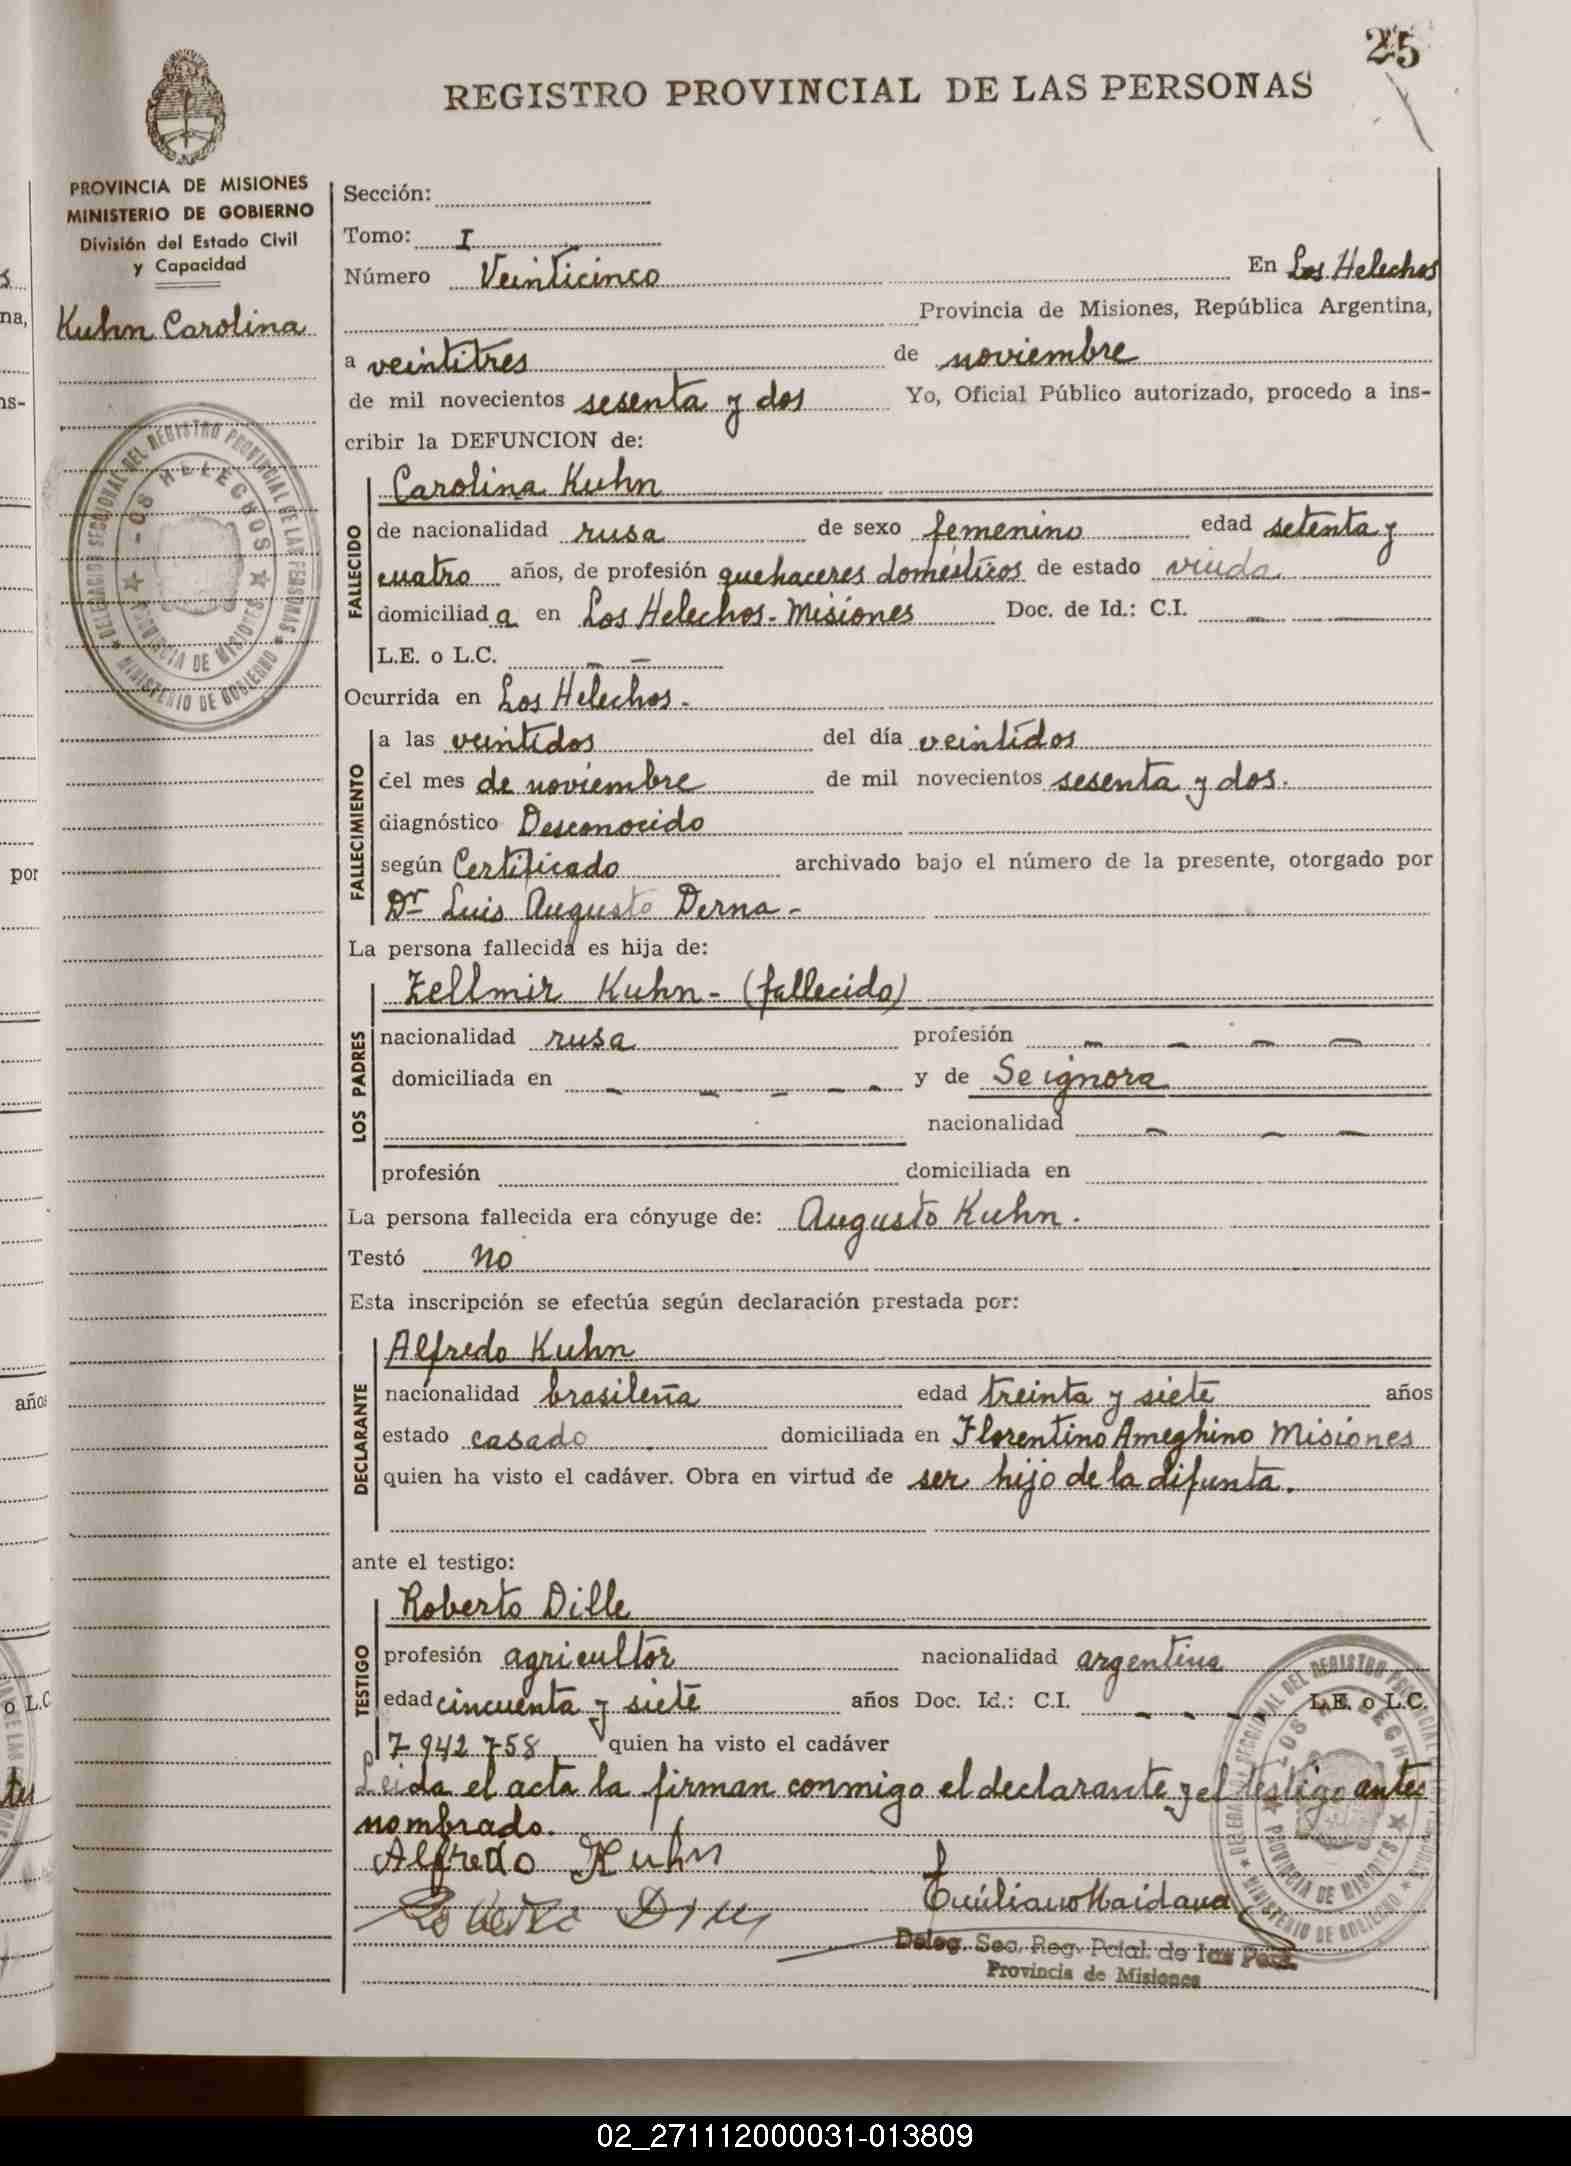 25
REGISTRO PROVINCIAL DE LAS PERSONAS
PROVINCIA DE MISIONES
MINISTERIO DE GOBIERNO
División del Estado Civil
y Capacidad
Kuhn Carolina
DELEGACION SECCIONAL DEL REGISTRO PROVINCIAL DE LAS PERSONAS
LOS HELECHOS
PROVINCIA DE MISIONES
MINISTERIO DE GOBIERNO
Sección:
Tomo: I
Número Veinticinco En Los Helechos
Provincia de Misiones, República Argentina,
a veintitres de noviembre
de mil novecientos sesenta y dos Yo, Oficial Público autorizado, procedo a ins-
cribir la DEFUNCION de:
FALLECIDO
Carolina Kuhn
de nacionalidad rusa de sexo femenino edad setenta y
cuatro años, de profesión quehaceres domésticos de estado viuda
domiciliad a en Los Helechos - Misiones Doc. de Id.: C.I. — —
L.E. o L.C. — —
Ocurrida en Los Helechos -
FALLECIMIENTO
a las veintidos del día veintidos
del mes de noviembre de mil novecientos sesenta y dos.
diagnóstico Desconocido
según Certificado archivado bajo el número de la presente, otorgado por
Dr Luis Augusto Derna -
La persona fallecida es hija de:
LOS PADRES
Zellmir Kuhn - (fallecido)
nacionalidad rusa profesión — — — —
domiciliada en — — — — — y de Seignora
nacionalidad — — —
profesión domiciliada en
La persona fallecida era cónyuge de: Augusto Kuhn.
Testó no
Esta inscripción se efectúa según declaración prestada por:
DECLARANTE
Alfredo Kuhn
nacionalidad brasileña edad treinta y siete años
estado casado domiciliada en Florentino Ameghino Misiones
quien ha visto el cadáver. Obra en virtud de ser hijo de la difunta.
ante el testigo:
TESTIGO
Roberto Dille
profesión agricultor nacionalidad argentina
edad cincuenta y siete años Doc. Id.: C.I. — — — — L.E. o L.C.
7 942 758 quien ha visto el cadáver
Leida el acta la firman conmigo el declarante y el testigo antes
nombrado.
Alfredo Kuhn
Roberto Dille
Emiliano Maidana
Deleg. Sec. Reg. Pcial. de las Pers.
Provincia de Misiones
DELEGACION SECCIONAL DEL REGISTRO PROVINCIAL
LOS HELECHOS
PROVINCIA DE MISIONES
MINISTERIO DE GOBIERNO
na,
ns-
por
años
o L.C
02_271112000031-013809